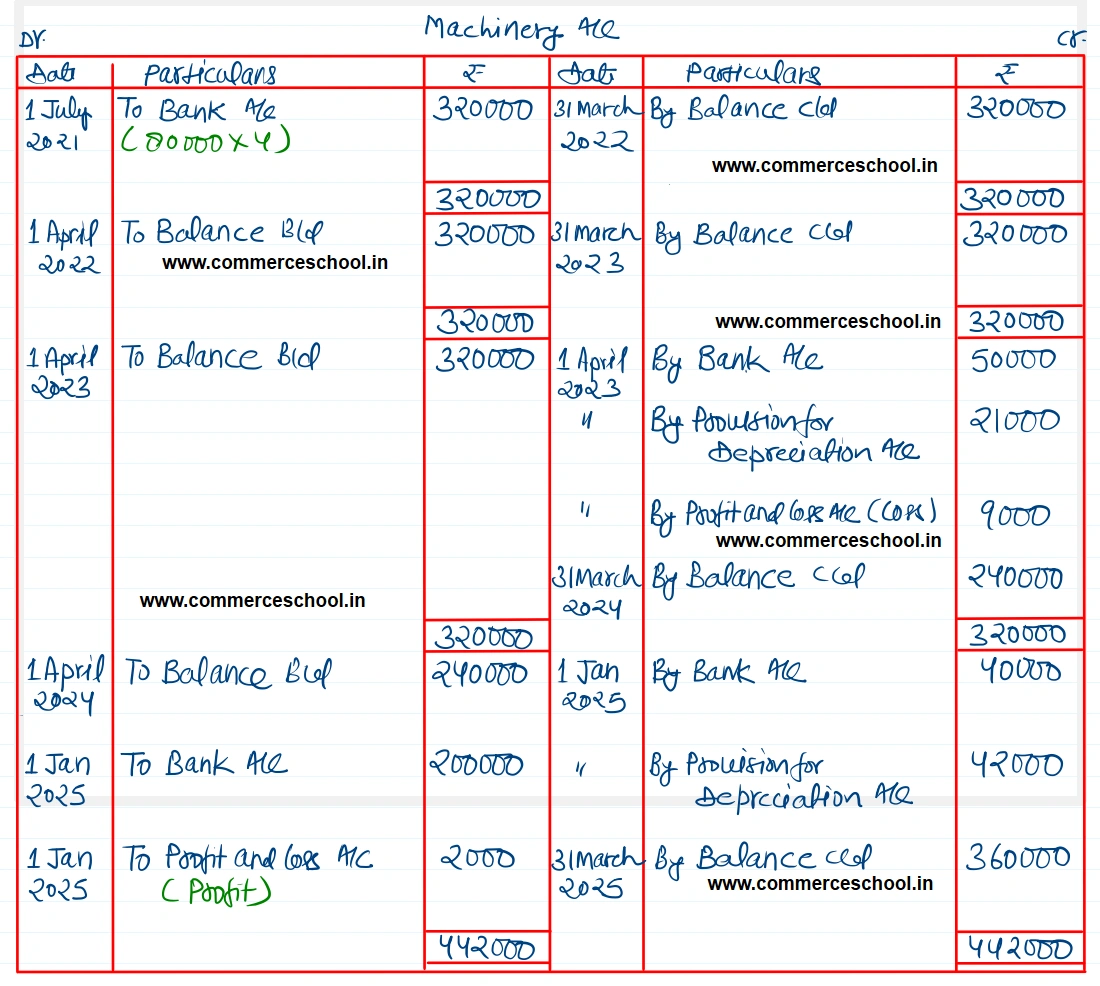 Machinery A/c
Dr. Cr.
Date Particulars ₹ Date Particulars ₹
1 July To Bank A/c 320000 31 March By Balance c/d 320000
2021 (80000×4) 2022
www.commerceschool.in
320000 320000
1 April To Balance B/d 320000 31 March By Balance c/d 320000
2022 www.commerceschool.in 2023
320000 www.commerceschool.in 320000
1 April To Balance B/d 320000 1 April By Bank A/c 50000
2023 2023
" By Provision for 21000
Depreciation A/c
" By Profit and loss A/c (Loss) 9000
www.commerceschool.in
31 March By Balance c/d 240000
www.commerceschool.in 2024
320000 320000
1 April To Balance B/d 240000 1 Jan By Bank A/c 40000
2024 2025
1 Jan To Bank A/c 200000 " By Provision for 42000
2025 Depreciation A/c
1 Jan To Profit and loss A/C 2000 31 March By Balance c/d 360000
2025 (Profit) 2025 www.commerceschool.in
442000 442000